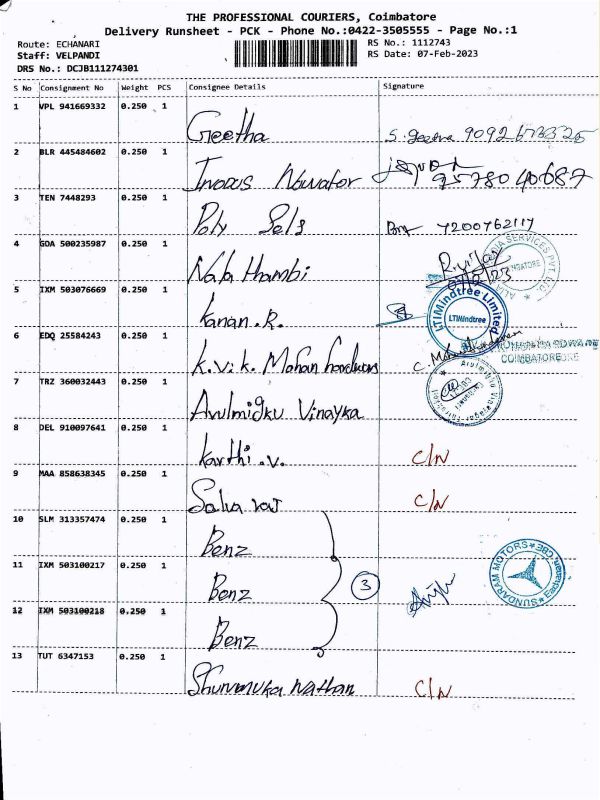 THE PROFESSIONAL COURIERS, Coimbatore
Delivery Runsheet - PCK - Phone No.:0422-3505555 - Page No.:1
Route: ECHANARI
RS No.: 1112743
Staff: VELPANDI
RS Date: 07-Feb-2023
DRS No.: DCJB111274301
S No Consignment No Weight PCS Consignee Details Signature
1 VPL 941669332 0.250 1
Greetha
2 BLR 445484602 0.250 1
9578040687
3 TEN 7448293 0.250 1
Poly Sels 7200762117
4 GOA 500235987 0.250 1
Nala thambi
5 IXM 503076669 0.250 1
Kanan.R. LTIMindtree Limited LTIMindtree
6 EDQ 25584243 0.250 1
K.V.K. Mohan COIMBATORE
7 TRZ 360032443 0.250 1
Arulmigku Vinayka
8 DEL 910097641 0.250 1
Karthi.V. C/N
9 MAA 858638345 0.250 1
C/N
10 SLM 313357474 0.250 1
Benz
11 IXM 503100217 0.250 1
Benz 3 SUNDARAM MOTORS
12 IXM 503100218 0.250 1
Benz
13 TUT 6347153 0.250 1
Shunmuka Nathan C/N